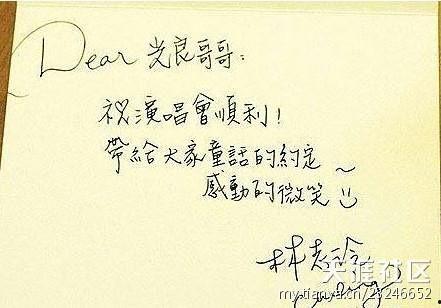 Dear 光良哥哥:
祝演唱會順利!
帶給大家童話的約定~
感動的微笑
林志玲
天涯社区
my.tianya.cn/23246652